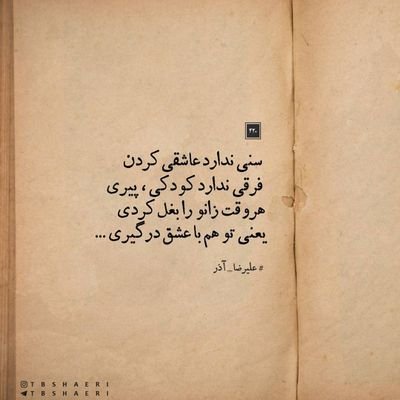 ۴۲۰
سنی ندارد عاشقی کردن
فرقی ندارد کودکی ، پیری
هروقت زانو را بغل کردی
یعنی تو هم با عشق درگیری ...
#علیرضا_آذر
TBSHAERI
TBSHAERI